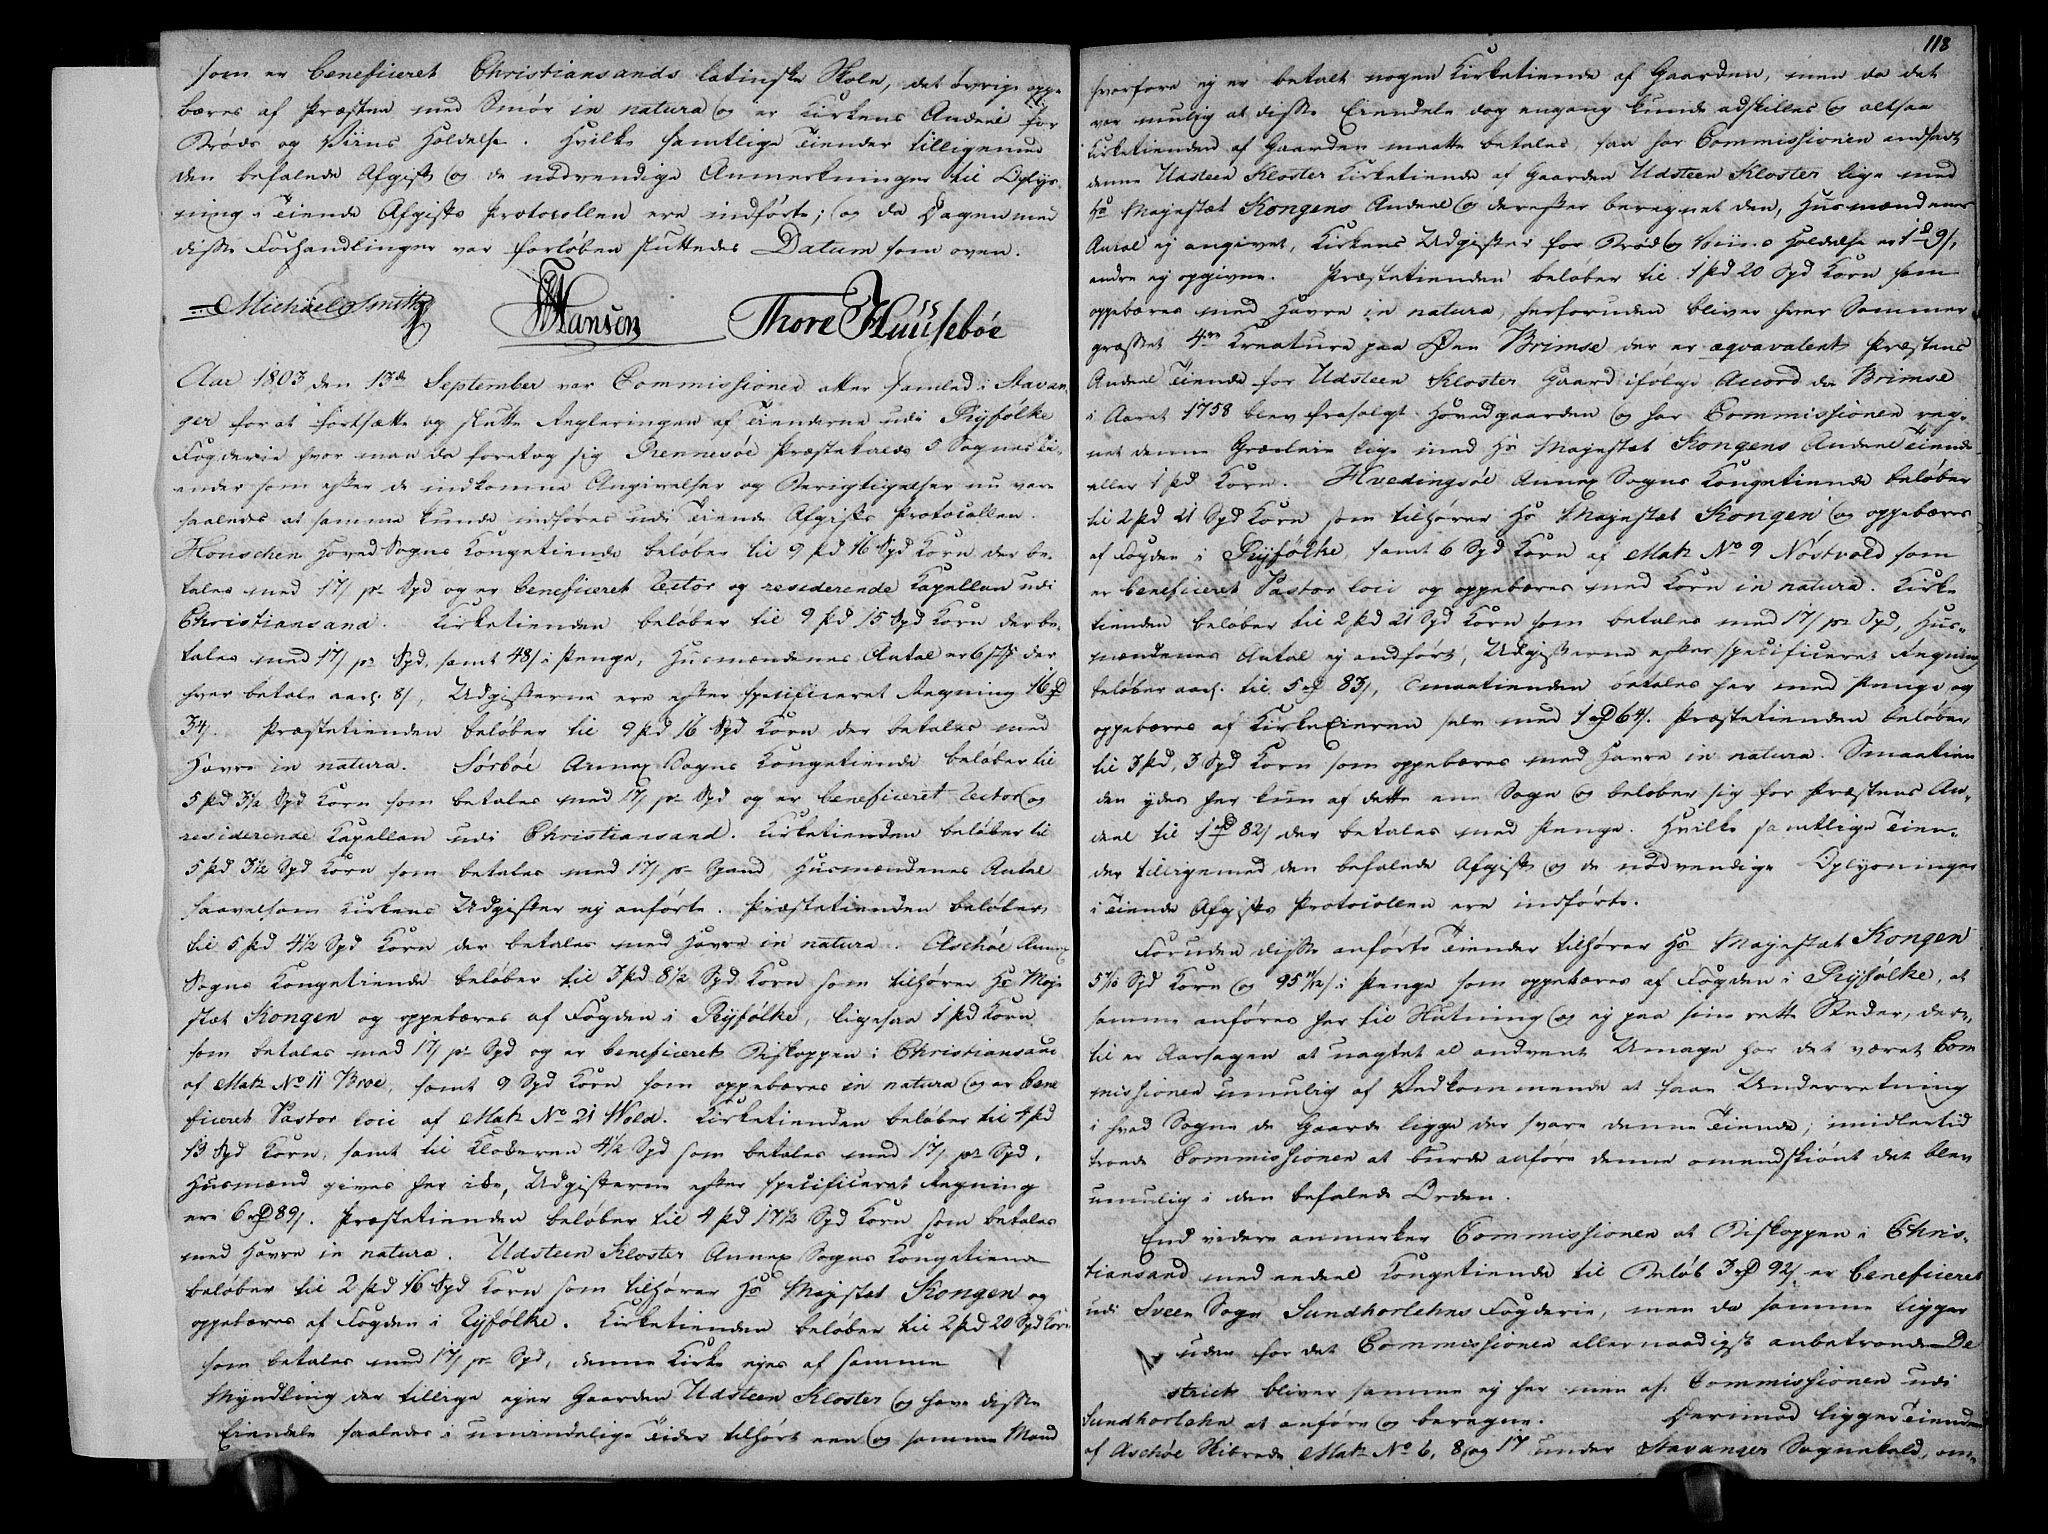 som er beneficeret Christiansands latinske Skole, det øvrige oppe
bæres af Præsten med Smør in natura og er Kirkens Andeel for
Brøds og Viins Holdelse. Hvilke samtlige Tiender tilligemed
den befalede Afgift og de nødvendige Anmerkninger til Oplys-
ning i Tiende Afgifts Protocollen ere indførte; og da Dagen med
disse Forhandlinger var forløben sluttedes Datum som oven.
Michael Smith Hansen Thore Huusebøe
Aar 1803 den 13de September var Commissionen atter samled i Stavan-
ger for at fortsætte og slutte Regleringen af Tienderne udi Ryfølke
Fogderie hvor man da foretog sig Rennesøe Præstekalds 5 Sognes Ti-
ender som efter de indkomne Angivelser og Berigtigelser nu vare
saaledes at samme kunde indføres udi Tiende Afgifts Protocollen.
Houschen Hoved Sogns Kongetiende beløber til 9 pd 16 Spd Korn der be-
tales med 17/ pr Spd og er beneficeret Rector og residerende Kapellan udi
Christiansand. Kirketienden beløber til 9 pd 15 Spd Korn der be-
tales med 17/ pr Spd, samt 48/ i Penge, Husmændenes Antal er 6 der
hver betale aarl. 8/, Udgifterne ere efter specificeret Regning 16 rd
34/. Præstetienden beløber til 9 pd 16 Spd Korn der betales med
Havre in natura. Sørbøe Annex Sogns Kongetiende beløber til
5 pd 3½ Spd Korn som betales med 17/ pr Spd og er beneficeret Rector og
residerende Kapellan udi Christiansand. Kirketienden beløber til
5 pd 3½ Spd Korn som betales med 17/ pr Spand, Husmændenes Antal
saavelsom Kirkens Udgifter ej anførte. Præstetienden beløber
til 5 pd 4½ Spd Korn der betales med Havre in natura. Aschøe Annex
Sogns Kongetiende beløber til 3 pd 8½ Spd Korn som tilhører Hs Maje
stæt Kongen og oppebæres af Fogden i Ryfølke, ligesaa 1 pd Korn
som betales med 17/ pr Spd og er beneficeret Biskoppen i Christiansand
af Matr No 11 Broe, samt 9 Spd Korn som oppebæres in natura og er bene
ficeret Pastor loci af Matr No 21 Wold. Kirketienden beløber til 4 pd
13 Spd Korn, samt til Klokeren 4½ Spd som betales med 17/ pr Spd,
Husmænd gives her ike, Udgifterne efter specificeret Regning
ere 6 rd 89/. Præstetienden beløber til 4 pd 17½ Spd Korn som betales
med Havre in natura. Udsteen Kloster Annex Sogns Kongetiende
beløber til 2 pd 16 Spd Korn som tilhører Hs Majestæt Kongen og
oppebæres af Fogden i Ryfølke. Kirketienden beløber til 2 pd 20 Spd Korn
som betales med 17/ pr Spd, denne Kirke ejes af samme
Myndling der tillige ejer Gaarden Udsteen Kloster og have disse
Eiendele saaledes i umindelige Tider tilhørt een og samme Mand
118
hvorfore ej er betalt nogen Kirketiende af Gaarden, men da det
var mulig at disse Eiendele dog engang kunde adskilles og altsaa
Kirketienden af Gaarden maatte betales, saa har Commissionen ansadt
denne Udsteen Kloster Kirketiende af Gaarden Udsteen Kloster lige med
Hs Majestæt Kongens Andeel og derefter beregnet den, Husmændenes
Antal ej angivet, Kirkens Udgifter for Brød og Viins Holdelse er 1 rd 9/,
andre ej opgivne. Præstetienden beløber til 1 pd 20 Spd Korn som
oppebæres med Havre in natura, herforuden bliver hver Sommer
græsset 4re Kreature paa Øen Brimse der er æqvavalent Præstens
Andeel Tiende for Udsteen Kloster Gaard ifølge Acord da Brimse
i Aaret 1758 blev frasolgt Hovedgaarden og har Commissionen reg-
net denne Græsleie lige med Hs Majestæt Kongens Andeel Tiende
eller 1 pd Korn. Hvedingsøe Annex Sogns Kongetiende beløber
til 2 pd 21 Spd Korn som tilhører Hs Majestæt Kongen og oppebæres
af Fogden i Ryfølke, samt 6 Spd Korn af Matr No 9 Nóstvold som
er beneficeret Pastor loci og oppebæres med Korn in natura. Kirke
tienden beløber til 2 pd 21 Spd Korn som betales med 17/ pr Spd, Hus-
mændenes Antal ej anført, Udgifterne efter specificeret Regning
beløber aarl. til 5 rd 83/, Smaatienden betales her med Penge og
oppebæres af KirkeEieren selv med 1 rd 64/. Præstetienden beløber
til 3 pd, 3 Spd Korn som oppebæres med Havre in natura. Smaatien
den ydes her kun af dette ene Sogn og beløber sig for Præstens An-
deel til 1 rd 82/ der betales med Penge. Hvilke samtlige Tien-
der tilligemed den befalede Afgift og de nødvendige Oplysninger
i Tiende Afgifts Protocollen ere indførte.
Foruden disse anførte Tiender tilhører Hs Majestæt Kongen
Spd Korn og 95 i Penge som oppebæres af Fogden i Ryfølke, at
samme anføres her til Slutning og ej paa sine rette Steder, der-
til er Aarsagen at uagtet al andvent Umage har det været Com
missionen umulig af Vedkommende at faae Underretning
i hvad Sogne de Gaarde ligge der svare denne Tiende, imidlertid
troede Commissionen at burde anføre denne omendskiønt det blev
umulig i den befalede Orden.
End videre anmerker Commissionen at Biskoppen i Chris-
tiansand med endeel Kongetiende til Beløb 3 rd 92/ er beneficeret
udi Sveen Sogn Sundhorlehns Fogderie, men da samme ligger
uden for det Commissionen allernaadigst anbetroede Di
strict bliver samme ej her men af Commissionen udi
Sundhorlehn at anføre og beregne. Derimod ligger Tienden
af Aschøe Skibrede Matr No 6, 8 og 17 under Stavanger Sognekald, om-